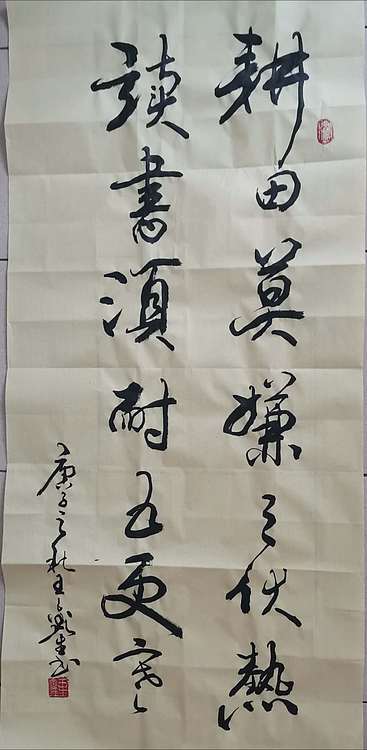 耕田莫嫌三伏熱
讀書須耐五更寒
庚子之秋王生书